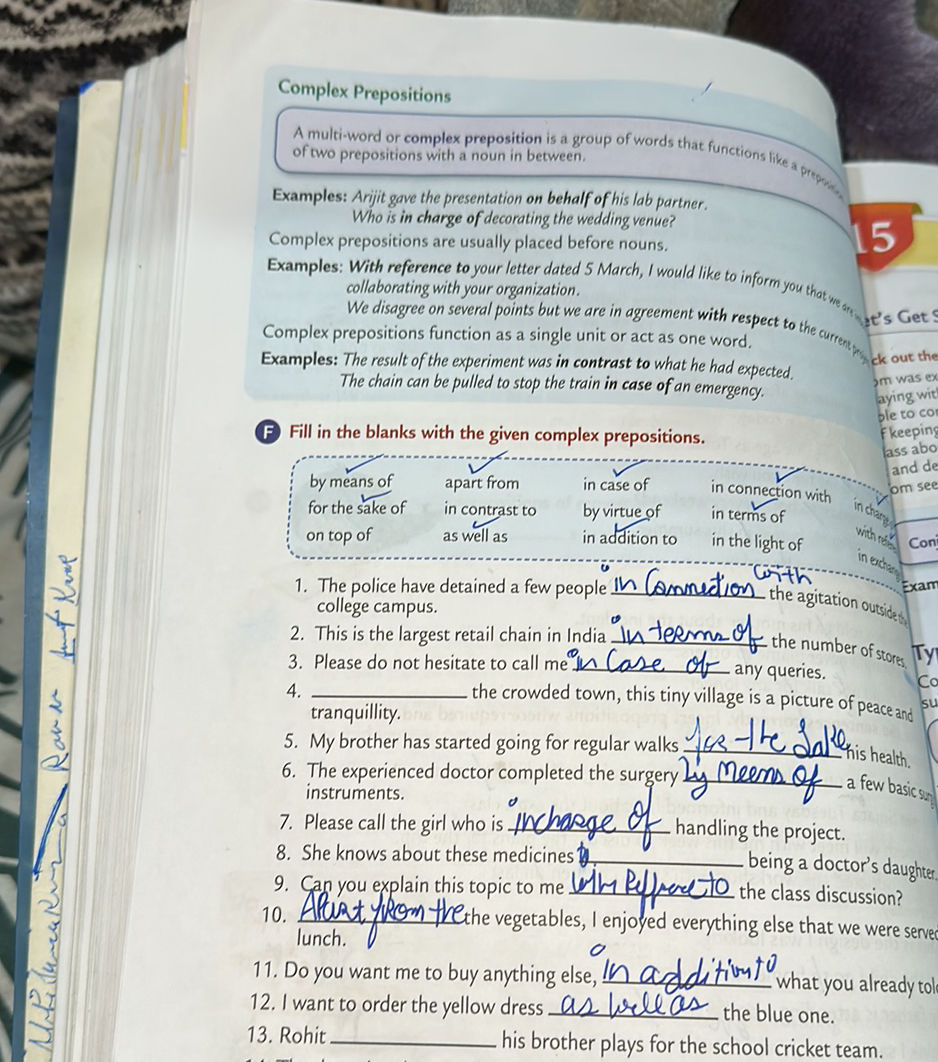 Complex Prepositions
A multi-word or complex preposition is a group of words that functions like a
of two prepositions with a noun in between.
Examples: Arijit gave the presentation on behalf of his lab partner.
Who is in charge of decorating the wedding venue?
Complex prepositions are usually placed before nouns.
Examples: With reference to your letter dated 5 March, I would like to inform you that we are
collaborating with your organization.
We disagree on several points but we are in agreement with respect to the current
Complex prepositions function as a single unit or act as one word.
Examples: The result of the experiment was in contrast to what he had expected.
The chain can be pulled to stop the train in case of an emergency.
F Fill in the blanks with the given complex prepositions.
by means of apart from in case of in connection with in charge
for the sake of in contrast to by virtue of in terms of with
on top of as well as in addition to in the light of in
1. The police have detained a few people in Connection with the agitation outside the
college campus.
2. This is the largest retail chain in India in teerms of the number of stores.
3. Please do not hesitate to call me in Case of any queries.
4. ____ the crowded town, this tiny village is a picture of peace and
tranquillity.
5. My brother has started going for regular walks for the Sake his health.
6. The experienced doctor completed the surgery by Meems of a few basic
instruments.
7. Please call the girl who is incharge of handling the project.
8. She knows about these medicines ____ being a doctor's daughter.
9. Can you explain this topic to me with to the class discussion?
10. Apart from the the vegetables, I enjoyed everything else that we were served
lunch.
11. Do you want me to buy anything else, in addition to what you already
12. I want to order the yellow dress as well as the blue one.
13. Rohit ____ his brother plays for the school cricket team.
15
Let's Get
ck out the